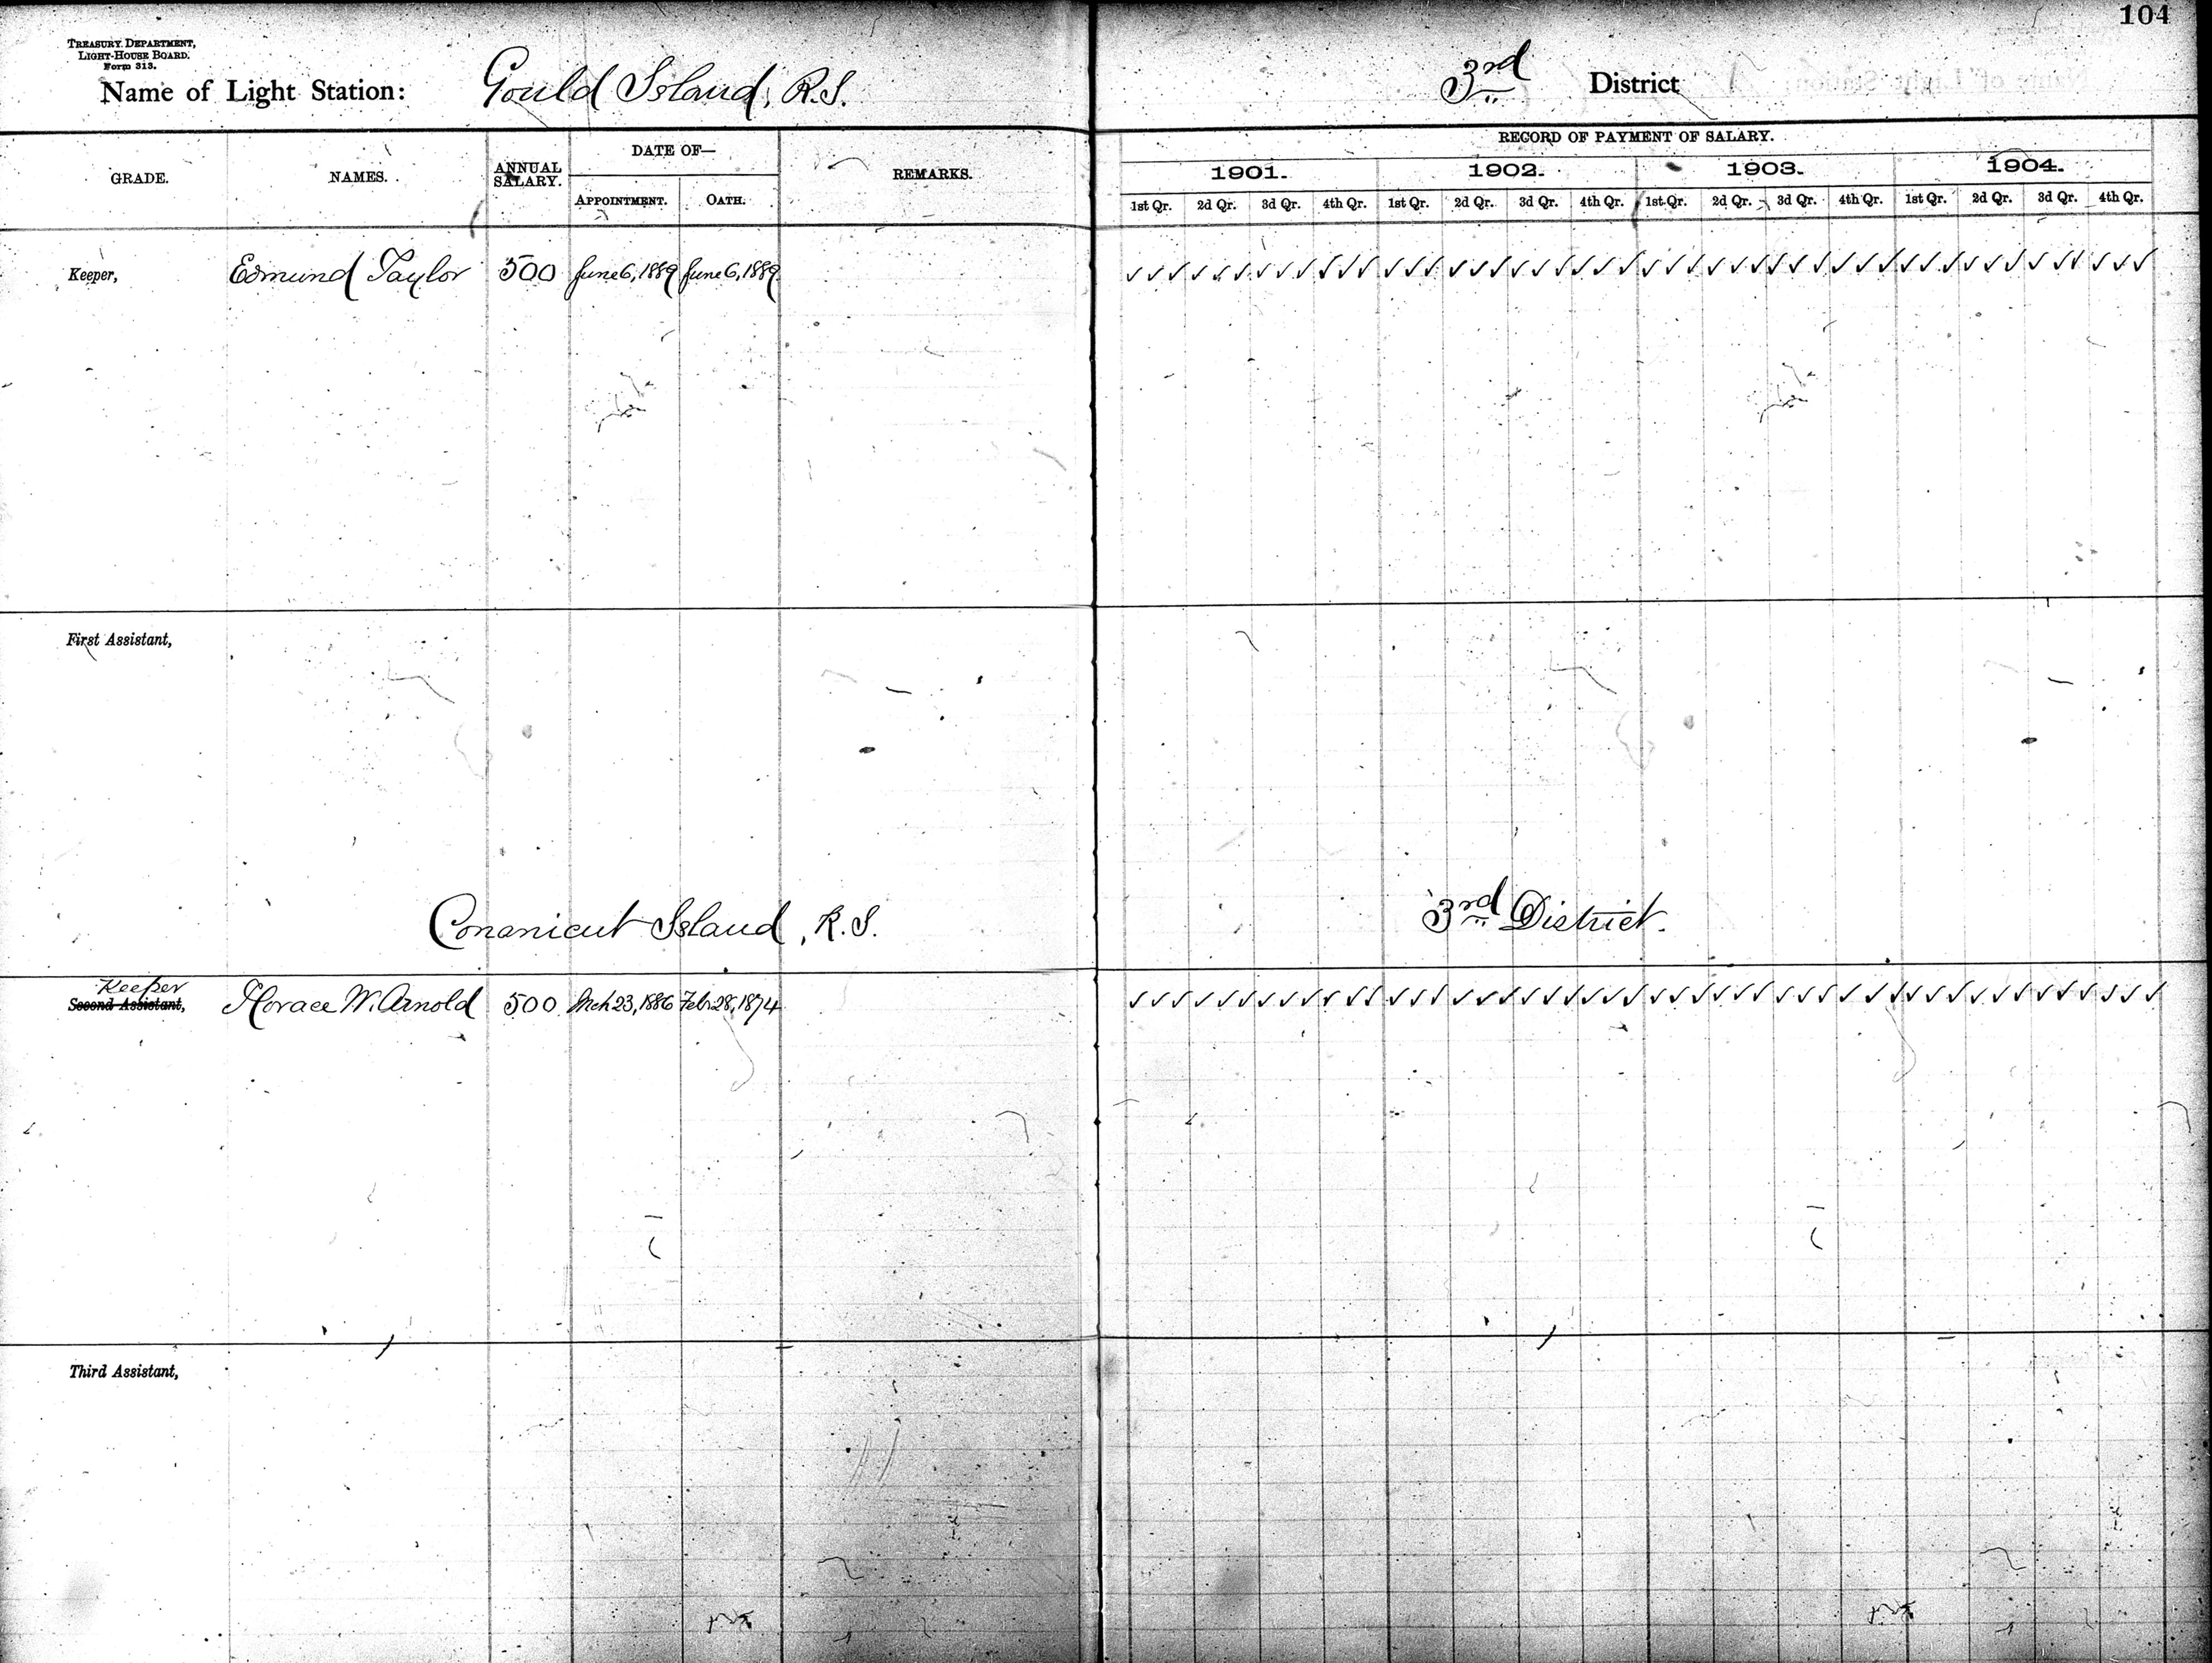 104
TREASURY DEPARTMENT,
LIGHT-HOUSE BOARD.
Form 313.
Name of Light Station: Gould Island, R.I. 3rd District
RECORD OF PAYMENT OF SALARY.
GRADE. NAMES. ANNUAL SALARY. DATE OF— REMARKS. 1901. 1902. 1903. 1904.
APPOINTMENT. OATH. 1st Qr. 2d Qr. 3d Qr. 4th Qr. 1st Qr. 2d Qr. 3d Qr. 4th Qr. 1st Qr. 2d Qr. 3d Qr. 4th Qr. 1st Qr. 2d Qr. 3d Qr. 4th Qr.
Keeper, Edmund Taylor 500 June 6, 1889 June 6, 1889 ✓✓✓ ✓✓✓ ✓✓✓ ✓✓✓ ✓✓✓ ✓✓✓ ✓✓✓ ✓✓✓ ✓✓✓ ✓✓✓ ✓✓✓ ✓✓✓ ✓✓✓ ✓✓✓ ✓✓✓ ✓✓✓
First Assistant,
Conanicut Island, R.I. 3rd District.
Keeper
Second Assistant, Horace W. Arnold 500 Mch 23, 1886 Feb. 28, 1874 ✓✓✓ ✓✓✓ ✓✓✓ ✓✓✓ ✓✓✓ ✓✓✓ ✓✓✓ ✓✓✓ ✓✓✓ ✓✓✓ ✓✓✓ ✓✓✓ ✓✓✓ ✓✓✓ ✓✓✓ ✓✓✓
Third Assistant,